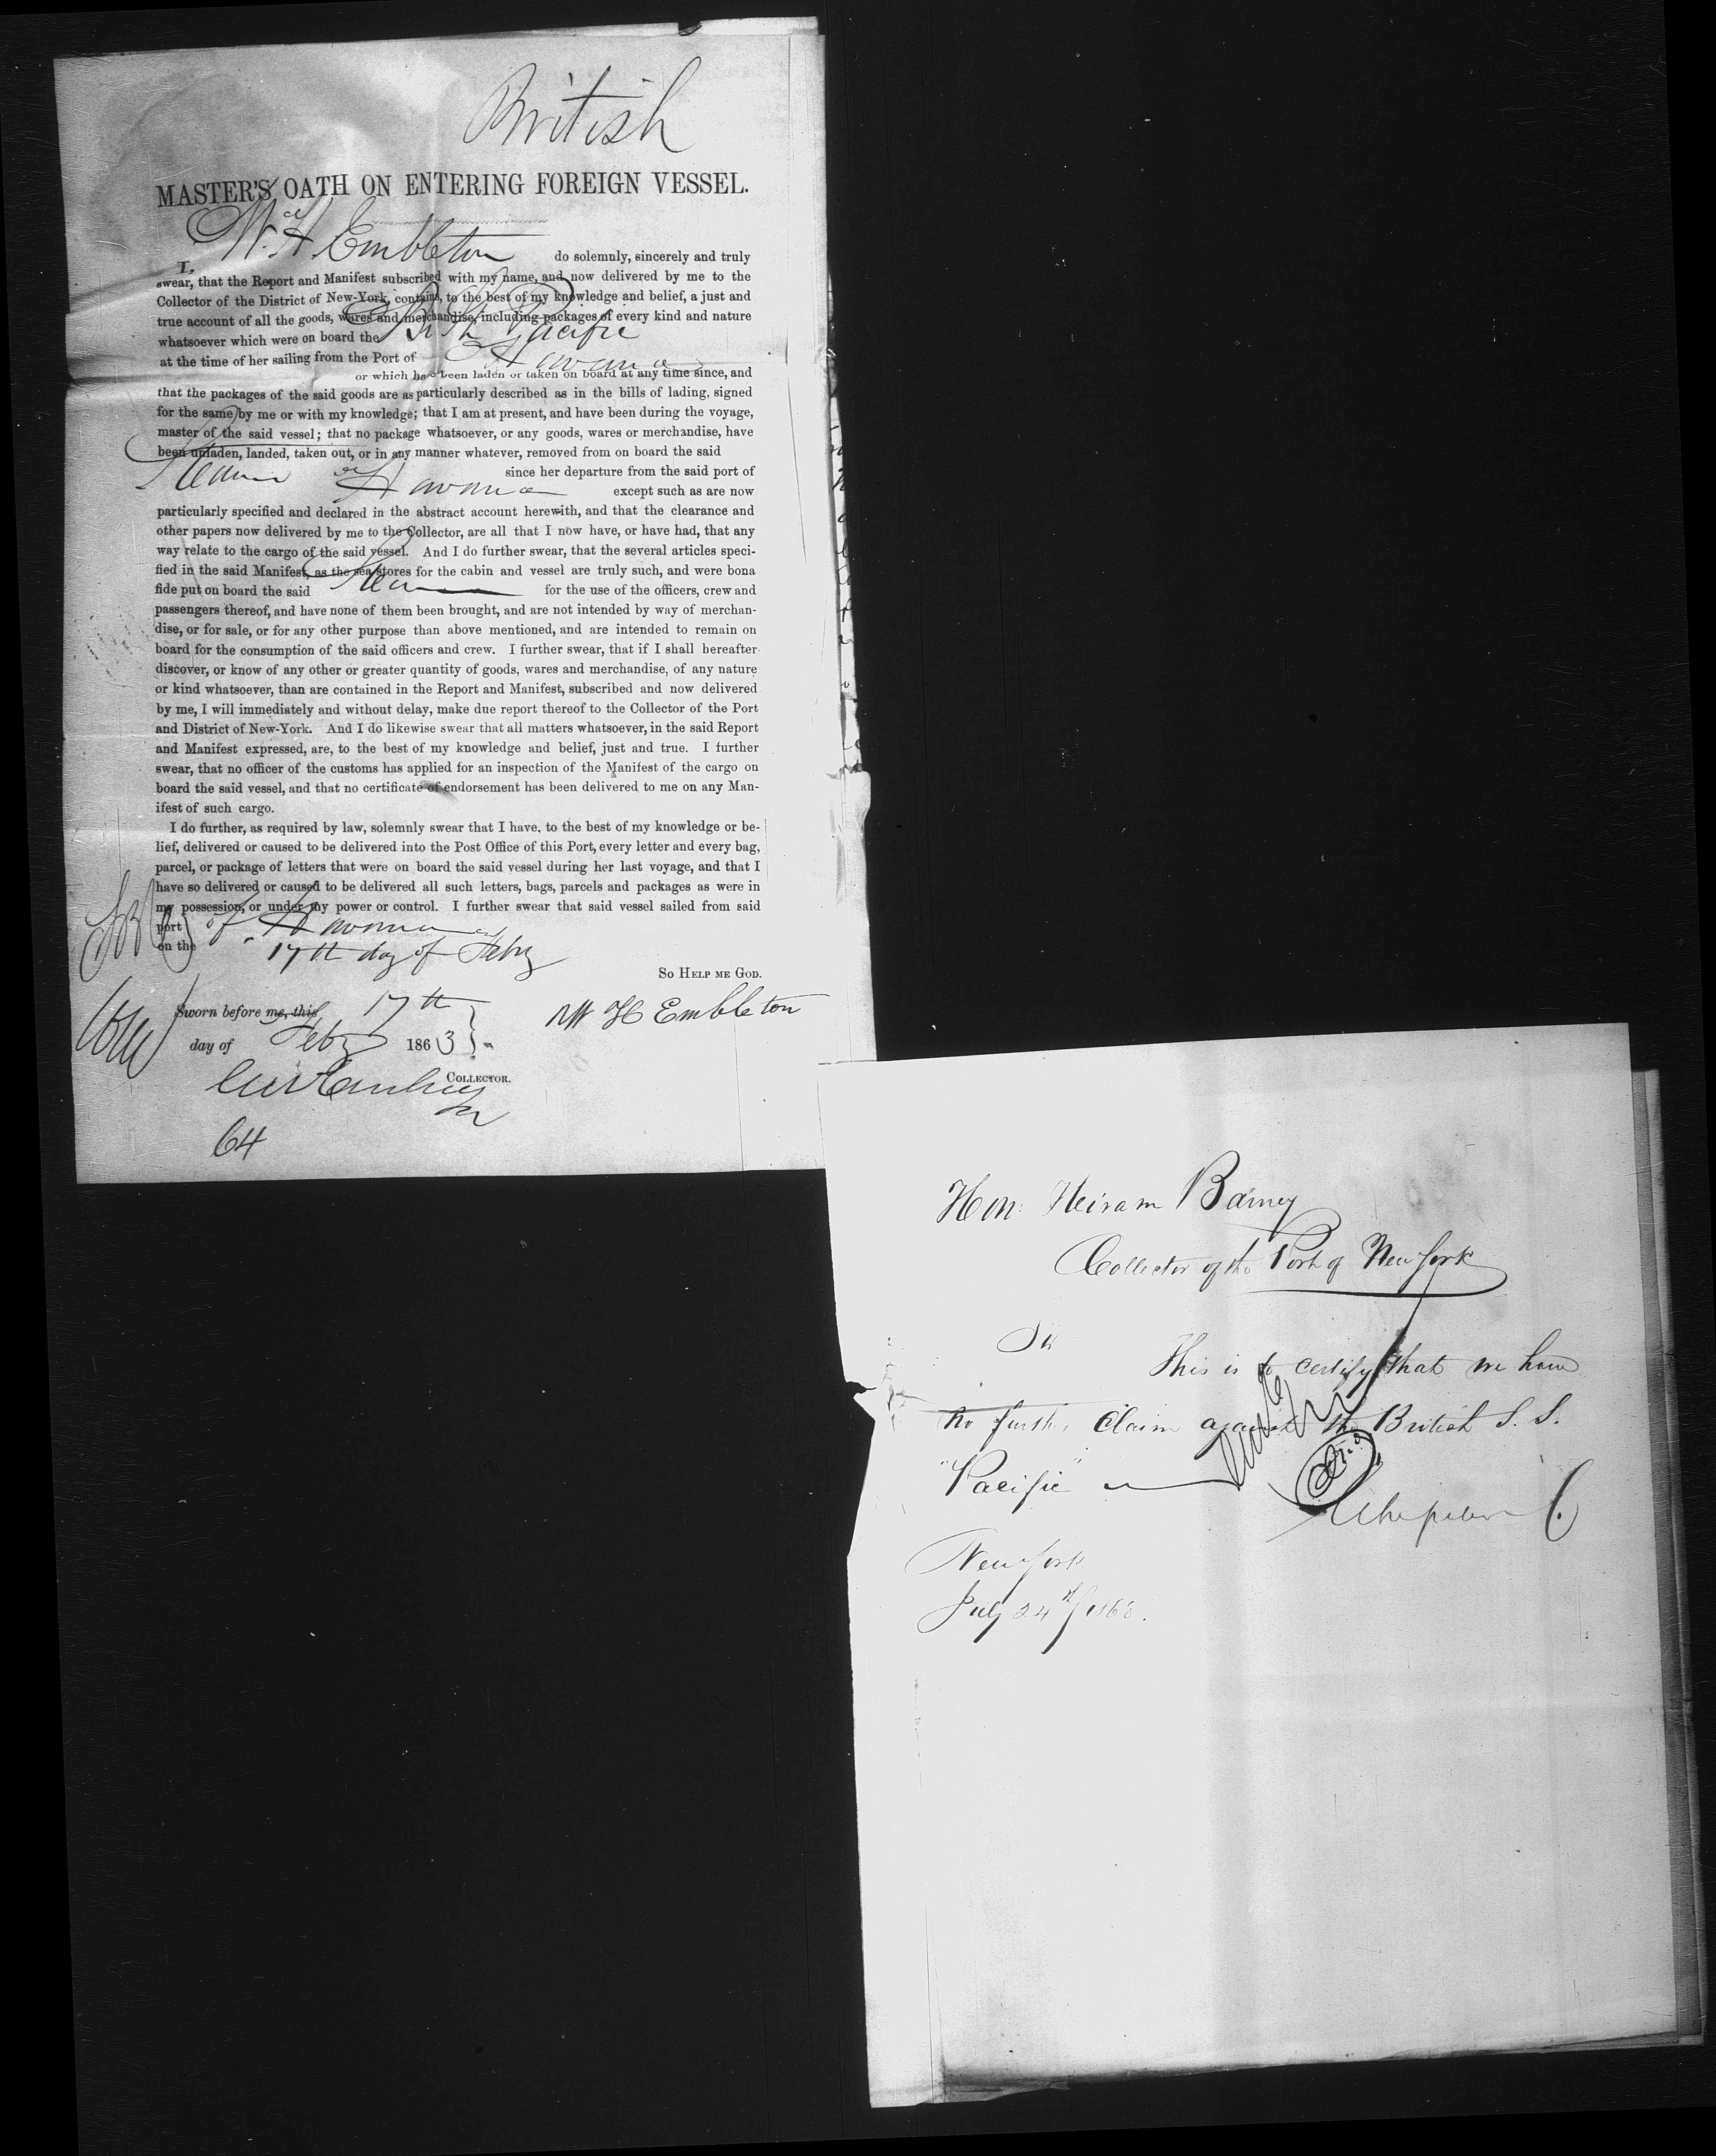 British
MASTER'S OATH ON ENTERING FOREIGN VESSEL.
I, W. H. Embleton do solemnly, sincerely and truly
swear, that the Report and Manifest subscribed with my name, and now delivered by me to the
Collector of the District of New-York, contains, to the best of my knowledge and belief, a just and
true account of all the goods, wares and merchandise, including packages of every kind and nature
whatsoever which were on board the Br. Str. Pacific
at the time of her sailing from the Port of Havana
or which have been laden or taken on board at any time since, and
that the packages of the said goods are as particularly described as in the bills of lading, signed
for the same by me or with my knowledge; that I am at present, and have been during the voyage,
master of the said vessel; that no package whatsoever, or any goods, wares or merchandise, have
been unladen, landed, taken out, or in any manner whatever, removed from on board the said
Steamer since her departure from the said port of
Havana except such as are now
particularly specified and declared in the abstract account herewith, and that the clearance and
other papers now delivered by me to the Collector, are all that I now have, or have had, that any
way relate to the cargo of the said vessel. And I do further swear, that the several articles speci-
fied in the said Manifest, as the sea stores for the cabin and vessel are truly such, and were bona
fide put on board the said for the use of the officers, crew and
passengers thereof, and have none of them been brought, and are not intended by way of merchan-
dise, or for sale, or for any other purpose than above mentioned, and are intended to remain on
board for the consumption of the said officers and crew. I further swear, that if I shall hereafter
discover, or know of any other or greater quantity of goods, wares and merchandise, of any nature
or kind whatsoever, than are contained in the Report and Manifest, subscribed and now delivered
by me, I will immediately and without delay, make due report thereof to the Collector of the Port
and District of New-York. And I do likewise swear that all matters whatsoever, in the said Report
and Manifest expressed, are, to the best of my knowledge and belief, just and true. I further
swear, that no officer of the customs has applied for an inspection of the Manifest of the cargo on
board the said vessel, and that no certificate of endorsement has been delivered to me on any Man-
ifest of such cargo.
I do further, as required by law, solemnly swear that I have, to the best of my knowledge or be-
lief, delivered or caused to be delivered into the Post Office of this Port, every letter and every bag,
parcel, or package of letters that were on board the said vessel during her last voyage, and that I
have so delivered or caused to be delivered all such letters, bags, parcels and packages as were in
my possession, or under my power or control. I further swear that said vessel sailed from said
port of Havana
on the 17th day of Feby
SO HELP ME GOD.
Sworn before me, this 17th
W H Embleton
day of Feby 1863
COLLECTOR.
64
Hon: Heiram Barney
Collector of the Port of New York
Sir
This is to certify that we have
no further Claim against the British S. S.
"Pacific"
New York
July 24th 1863.